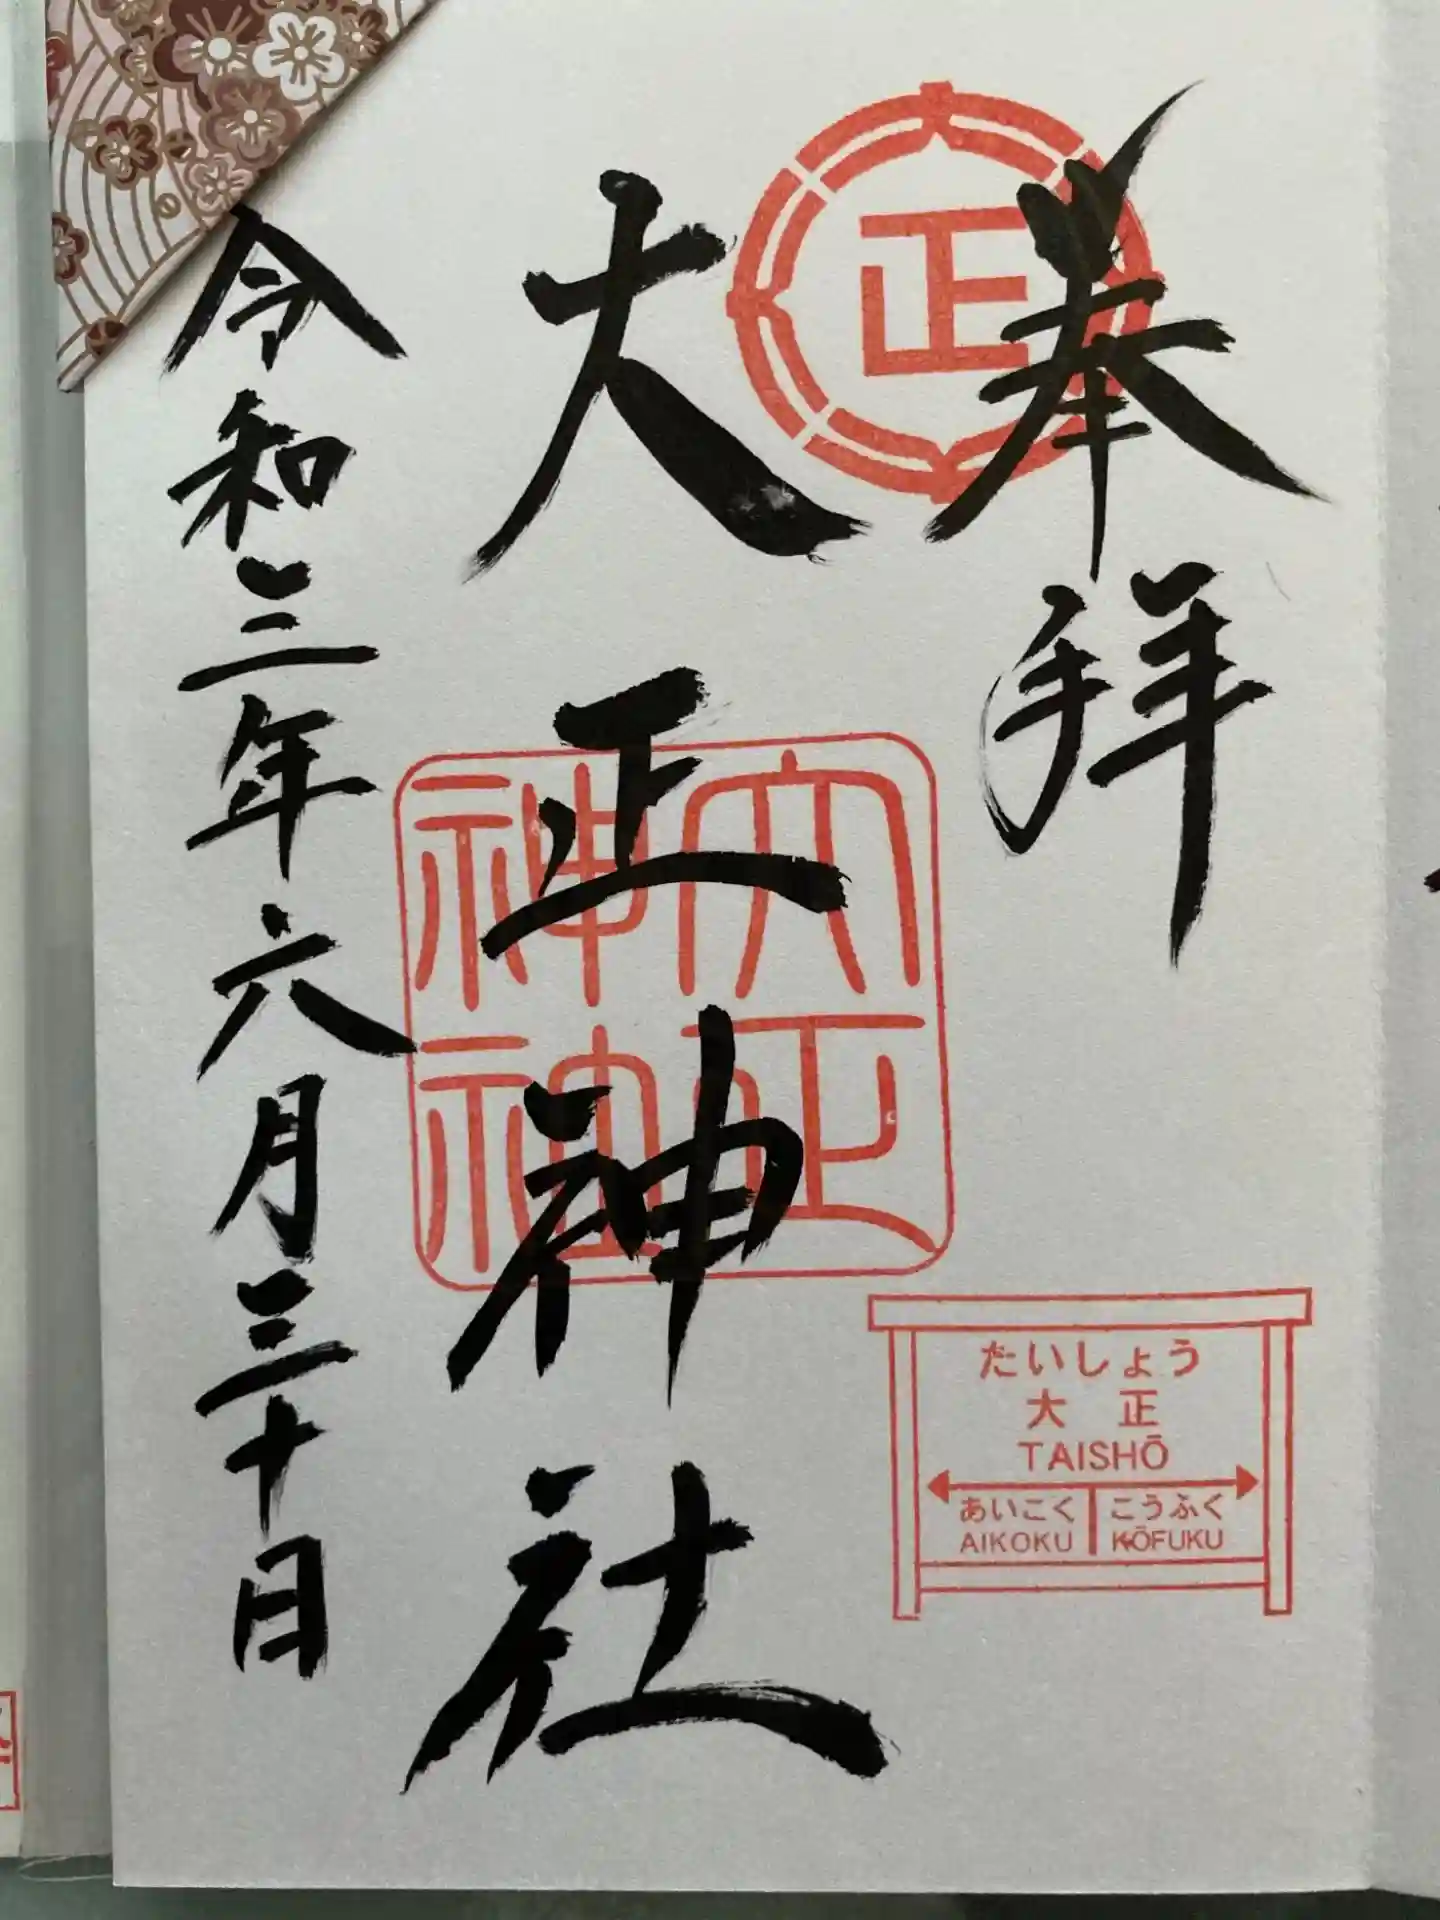 奉拝
正
大正神社
大正
神社
たいしょう
大正
TAISHŌ
あいこく こうふく
AIKOKU KŌFUKU
令和三年六月三十日